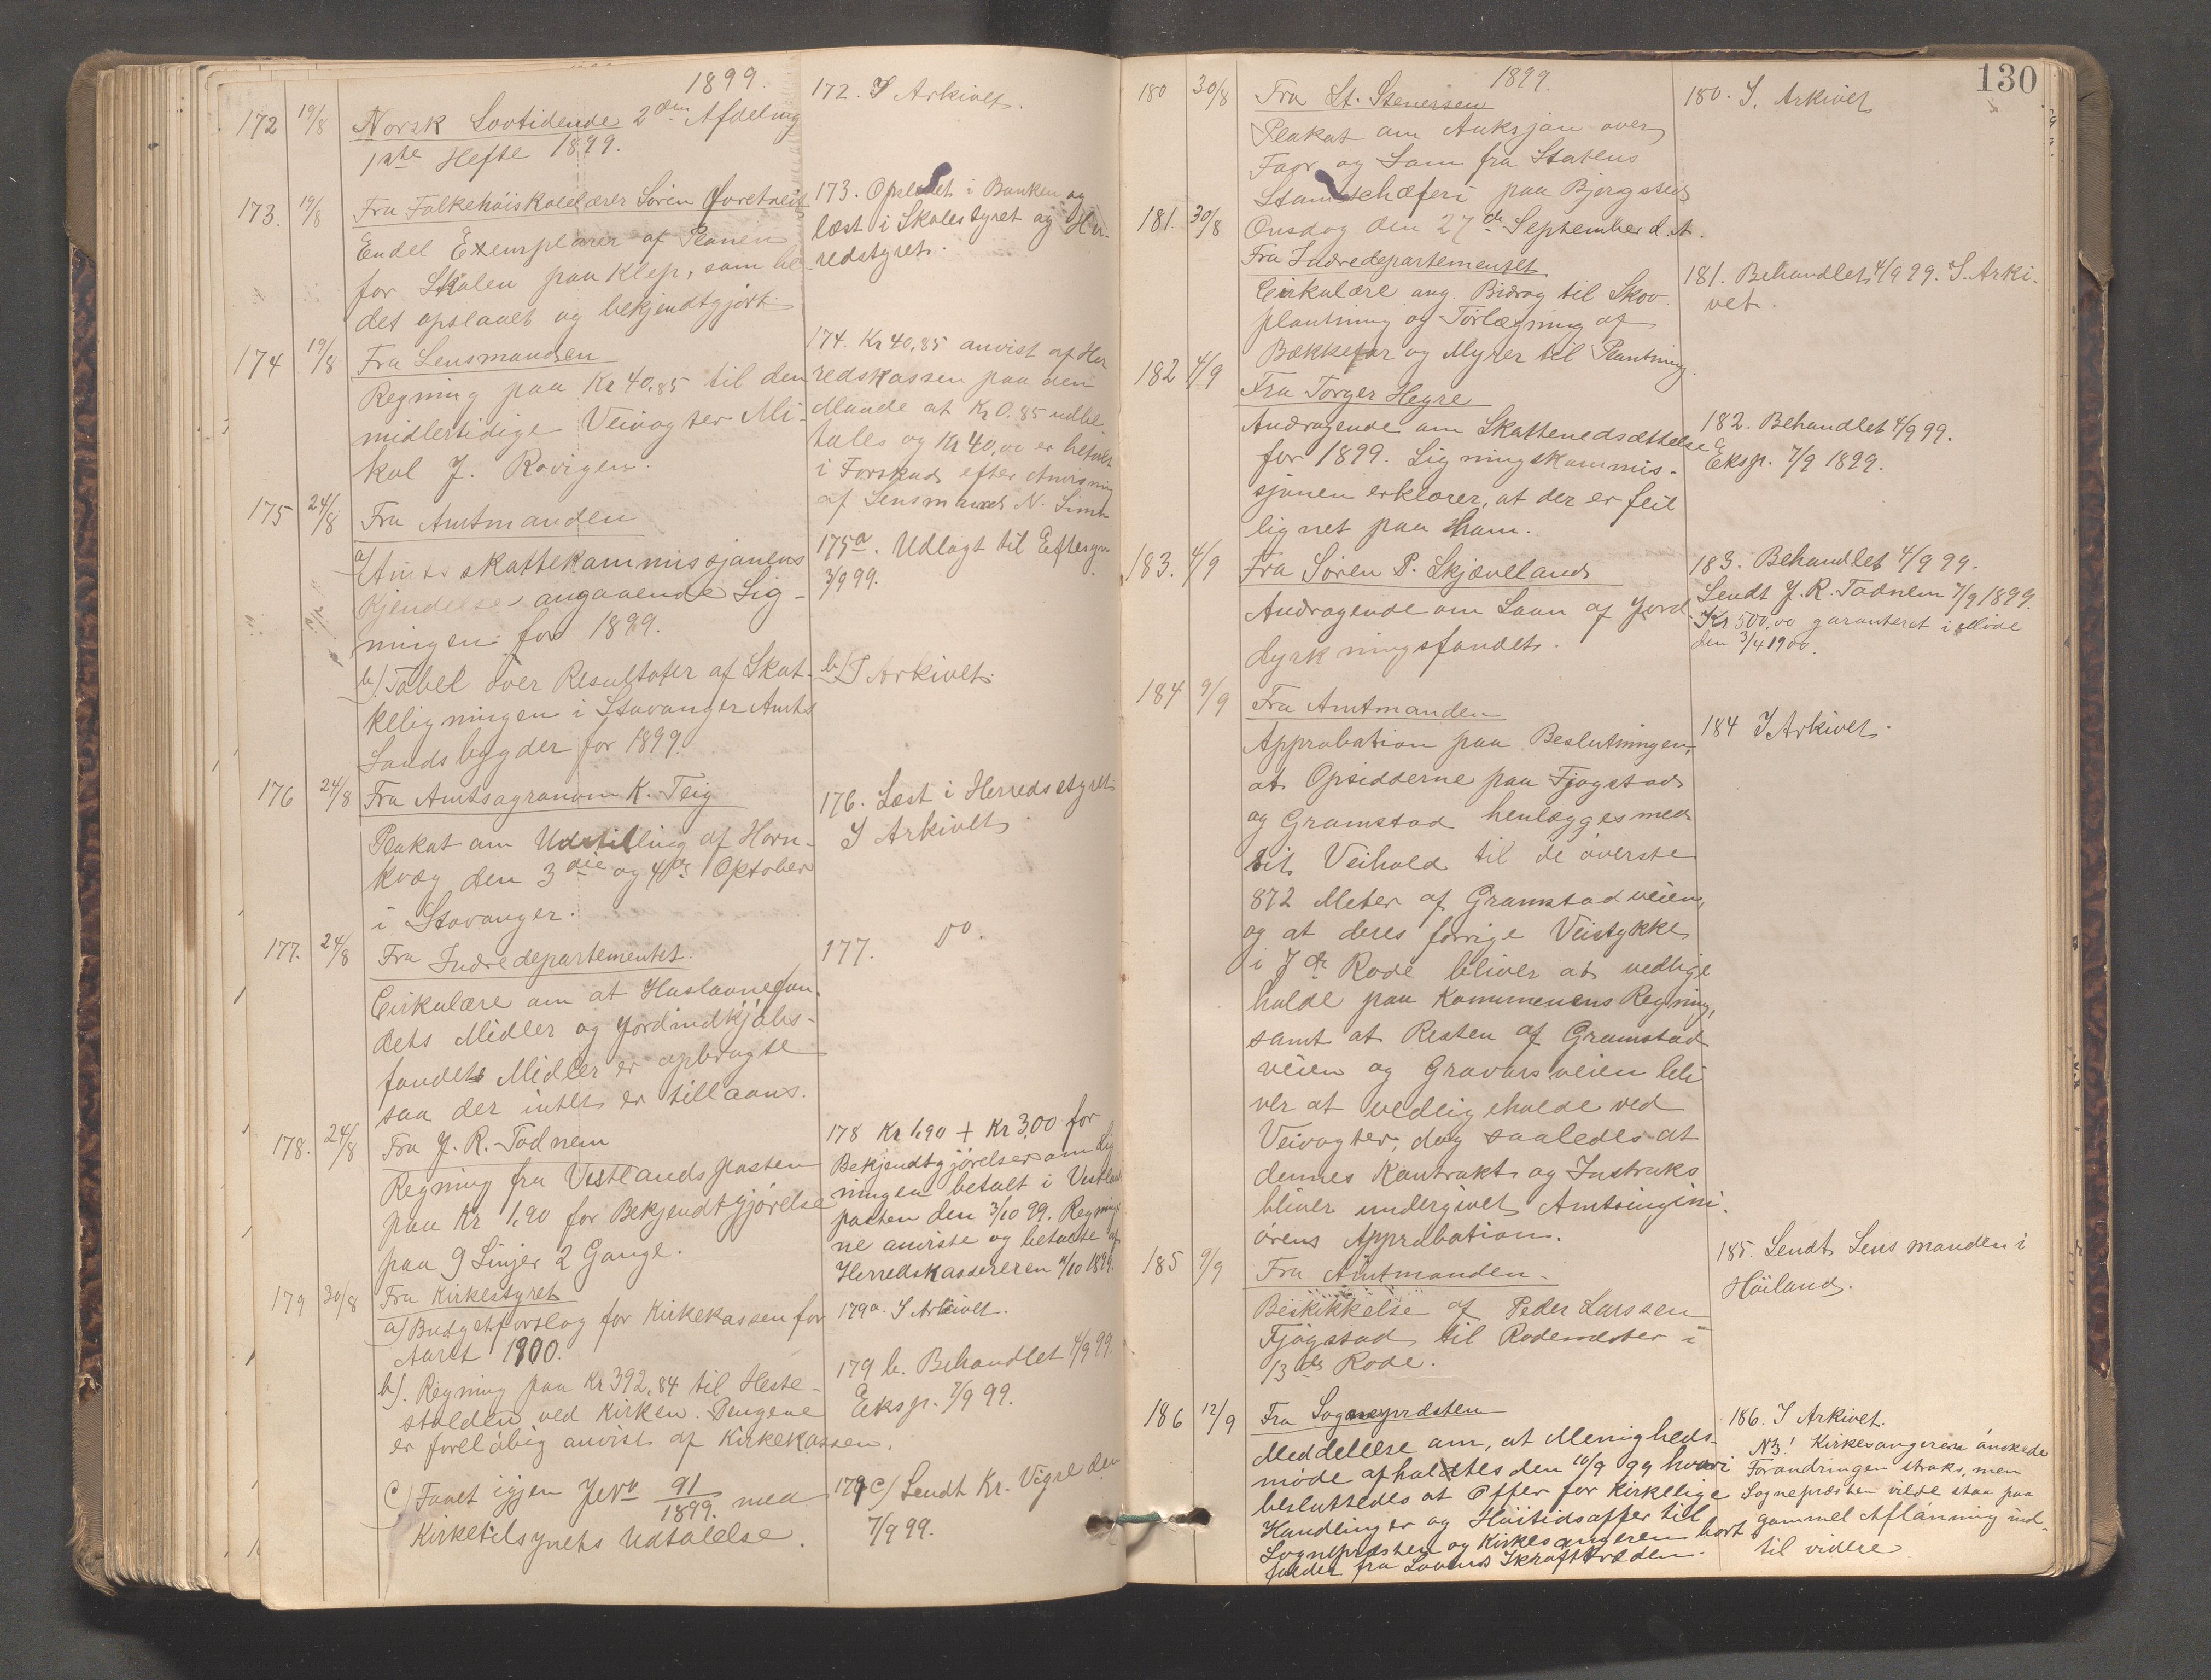 1899.
172 19/8 Norsk Lovtidende 2den Afdeling
1ste Hefte 1899.
172. I Arkivet.
173. 19/8 Fra Folkehöiskolelærer Sören
Endel Exemplarer af Planen
for Skolen paa Klep, som be-
des opslaaet og bekjendtgjört.
173. Opslaaet i Banken og
læst i Skolestyret og Her-
redstyret.
174 19/8 Fra Lensmanden
Regning paa Kr 40,85 til den
midlertidige Veivogter Mi-
kal J. Rovigen.
174. Kr 40,85 anvist af Her
redskassen paa den
Maade at Kr 0,85 udbe-
tales og Kr 40,00 er betalt
i Forskud efter Anvisning
af Lensmand N.
175 24/8 Fra Amtmanden
a) Amtsskattekommissjonens
Kjendelse angaaende Lig-
ningen for 1899.
b). Tabel over Resultater af Skat-
teligningen i Stavanger Amts
Landsbygder for 1899.
175a. Udlagt til Eftersyn
3/9 99.
b) I Arkivet.
176 24/8 Fra Amtsagronom K. Teig
Plakat om Udstilling af Horn-
kvæg den 3die og 4de Oktober
i Stavanger.
176. Læst i Herredsstyret
I Arkivet.
177. 24/8 Fra Indredepartementet.
Cirkulære om at Huslaanefon-
dets Midler og Jordindkjöbs-
fondets Midler er opbrugte
saa der intet er tillaans.
177. Do.
178. 24/8 Fra J. R. Todnem
Regning fra Vestlandsposten
paa Kr 1,90 for Bekjendtgjörelse
paa 9 Linjer 2 Gange.
178 Kr 1,90 + Kr 3,00 for
Bekjendtgjörelser om Lig-
ningen betalt i Vestlands
posten den 3/10 99. Regninge
ne anviste og betalte af
Herredskassereren 11/10 1899.
179 30/8 Fra Kirkestyret
a) Budgetforslag for Kirkekassen for
Aaret 1900.
b). Regning paa Kr 392,84 til Heste-
stalden ved Kirken. Pengene
er forelöbig anvist af Kirkekassen.
c) Faaet igjen Jevo 91/1899. med
Kirketilsynets Udtalelse.
179a. I Arkivet.
179 b. Behandlet 4/9 99.
Eksp. 7/9 99.
179 c) Sendt Kr. Vigre den
7/9 99.
130
1899.
180 30/8 Fra St. Stenersen
Plakat om Auksjon over
Faar og Lam fra Statens
Stamschæferi paa Bjergsted
Onsdag den 27de September d. A.
180. I. Arkivet
181. 30/8 Fra Indredepartementet
Cirkulære ang. Bidrag til Skov
plantning og Törlægning af
Bækkefar og Myrer til Plantning.
181. Behandlet 4/9 99. I. Arki-
vet.
182 4/9 Fra Torger Hegre
Andragende om Skattenedsættelse
for 1899. Ligningskommis-
sjonen erklærer, at der er feil
lignet paa ham.
182. Behandlet 4/9 99.
Eksp. 7/9 1899.
183. 4/9 Fra Sören P. Skjæveland
Andragende om Laan af Jord
dyrkningsfondet.
183. Behandlet 4/9 99.
Sendt J. R. Todnem 7/9 1899.
Kr 500,00 garanteret i Möde
den 3/4 1900.
184 9/9 Fra Amtmanden
Approbation paa Beslutningen,
at Opsidderne paa Fjogstad
og Gramstad henlægges med
sit Veihold til de överste
872 Meter af Gramstadveien,
og at deres forrige Veistykke
i 7de Rode bliver at vedlige
holde paa Kommunens Regning,
samt at Resten af Gramstad
veien og Gravarsveien bli
ver at vedligeholde ved
Veivogter, dog saaledes at
dennes Kontrakt og Instruks
bliver undergivet Amtsingini-
örens Approbation.
184 I Arkivet.
185 9/9 Fra Amtmanden.
Beskikkelse af Peder Larssen
Fjogstad til Rodemester i
13de Rode.
185. Sendt Lensmanden i
Höiland.
186 12/9 Fra Sognepræsten
Meddelelse om, at Menigheds-
möde afholdtes den 10/9 99 hvori
besluttedes at Offer for Kirkelige
Handlinger og Höitidsoffer til
Sognepræsten og Kirkesangeren bort
falder fra Lovens Ikrafttræden.
186. I Arkivet.
NB! Kirkesangeren önskede
Forandringen straks, men
Sognepræsten vilde staa paa
gammel Aflönning ind-
til videre.